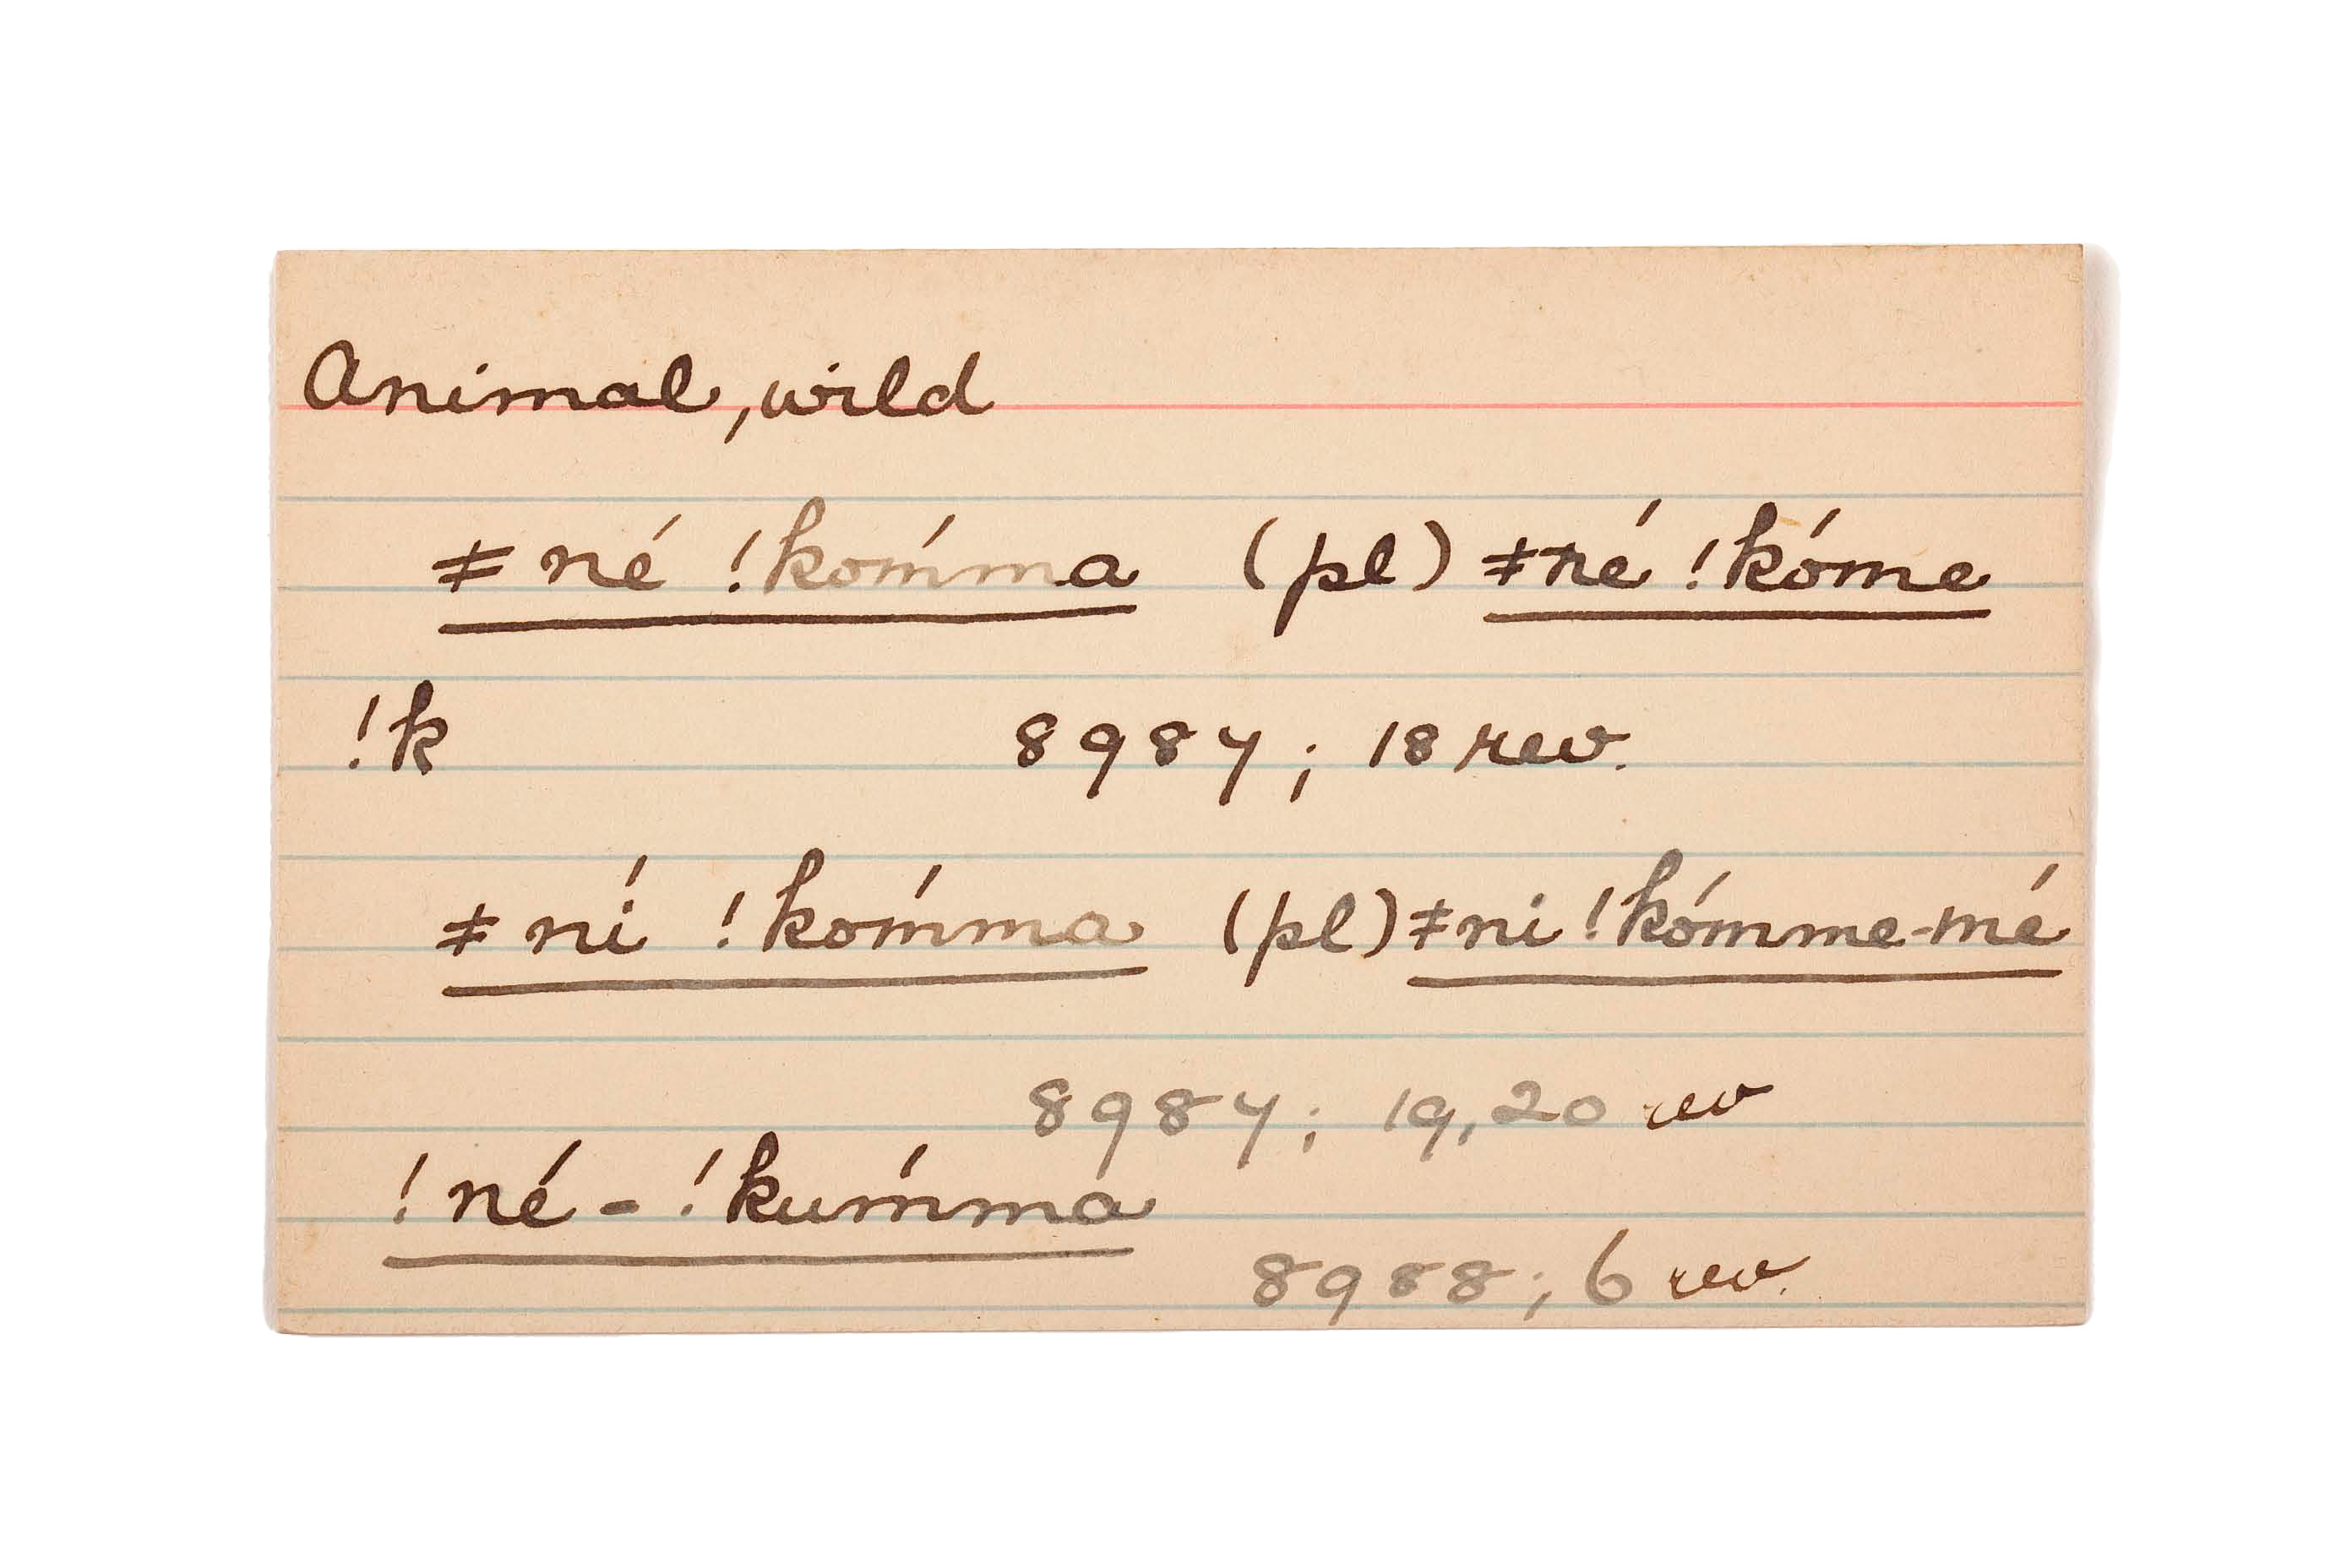 Animal, wild
ǂné !kom´ma (pl) ǂné !kóme
!k 8987; 18 rev.
ǂní !kom´ma (pl) ǂni !kómme-mé
8987; 19, 20 rev
!né - !kum´ma
8988; 6 rev.